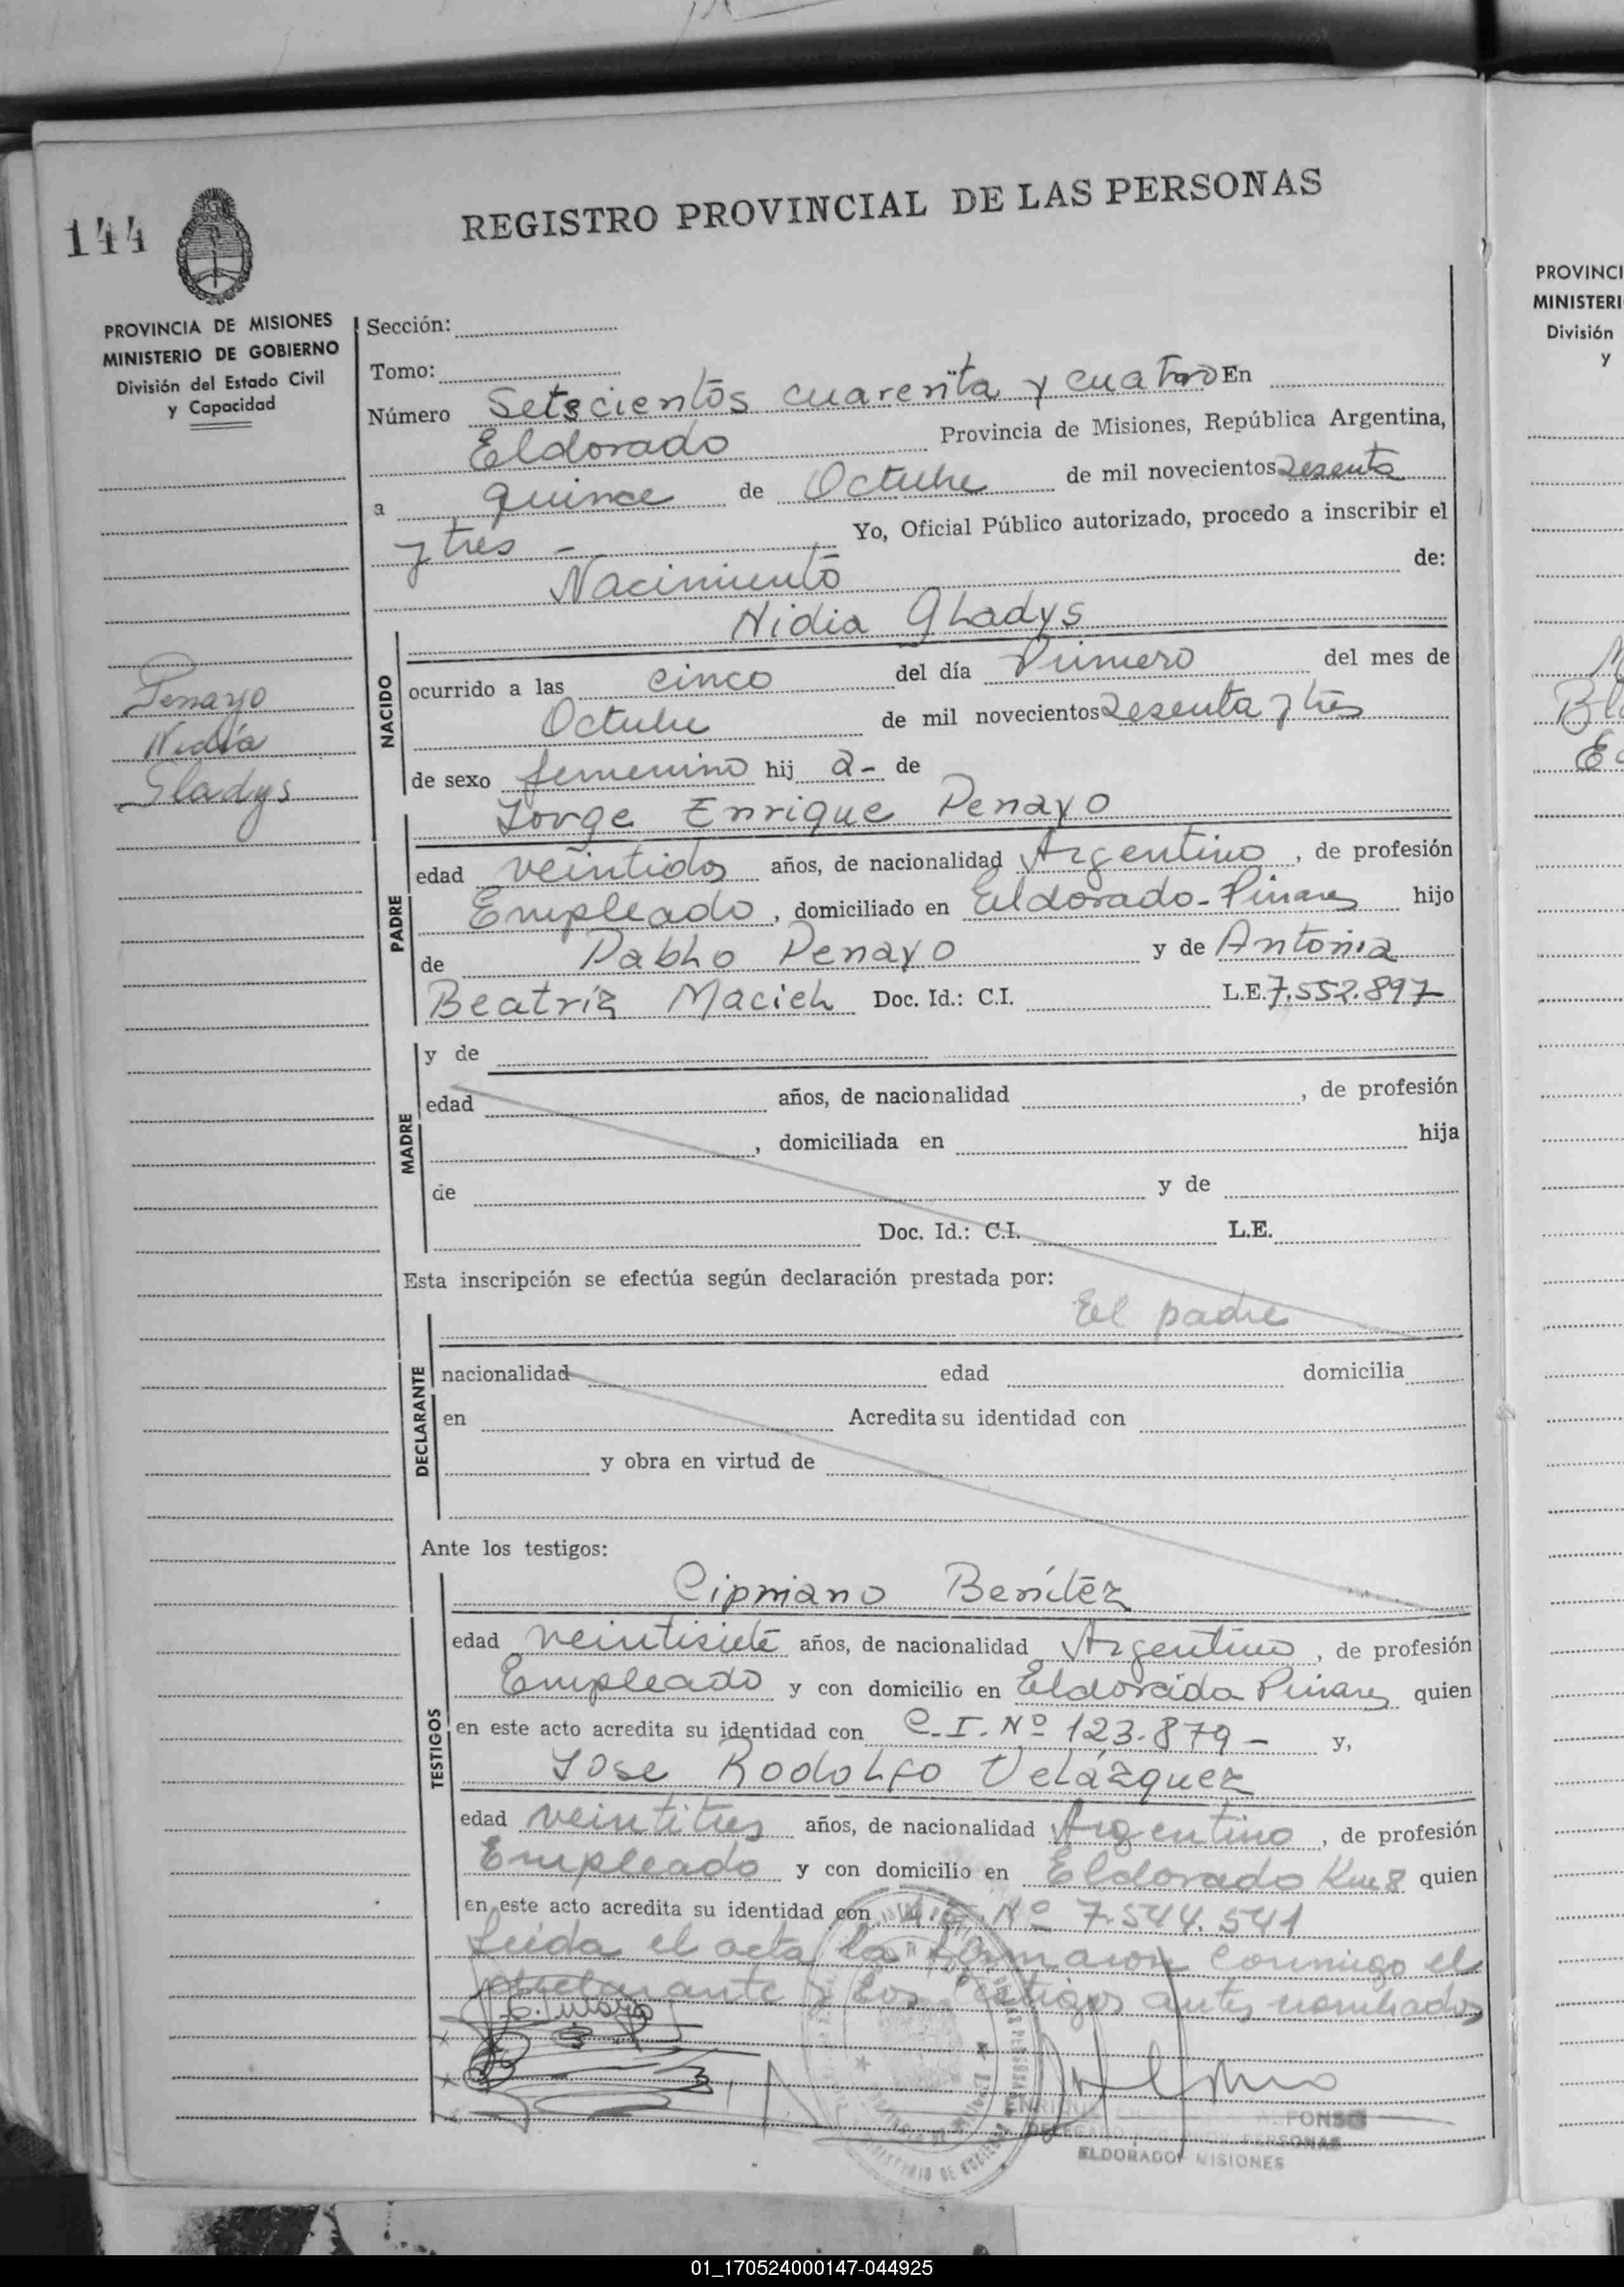 144
REGISTRO PROVINCIAL DE LAS PERSONAS
PROVINCIA DE MISIONES
MINISTERIO DE GOBIERNO
División del Estado Civil
y Capacidad
Penayo
Nidia
Gladys
Sección:
Tomo:
Número Setecientos cuarenta y cuatro En
Eldorado Provincia de Misiones, República Argentina,
a quince de Octubre de mil novecientos sesenta
y tres - Yo, Oficial Público autorizado, procedo a inscribir el
Nacimiento de:
NACIDO
Nidia Gladys
ocurrido a las cinco del día Primero del mes de
Octubre de mil novecientos sesenta y tres
de sexo femenino hij a- de
PADRE
Jorge Enrique Penayo
edad veintidos años, de nacionalidad Argentino, de profesión
Empleado, domiciliado en Eldorado-Pinares hijo
de Pablo Penayo y de Antonia
Beatríz Maciel Doc. Id.: C.I. L.E. 7.552.897
MADRE
y de
edad años, de nacionalidad , de profesión
, domiciliada en hija
de y de
Doc. Id.: C.I. L.E.
Esta inscripción se efectúa según declaración prestada por:
El padre
DECLARANTE
nacionalidad edad domicilia
en Acredita su identidad con
y obra en virtud de
Ante los testigos:
TESTIGOS
Cipriano Benítez
edad veintisiete años, de nacionalidad Argentino, de profesión
Empleado y con domicilio en Eldorado Pinares quien
en este acto acredita su identidad con C.I. Nº 123.879 - y,
Jose Rodolfo Velázquez
edad veintitres años, de nacionalidad Argentino, de profesión
Empleado y con domicilio en Eldorado Km 8 quien
en este acto acredita su identidad con Nº 7.544.541
Leida el acta la firmaron conmigo el
declarante y los testigos antes nombrados
ELDORADO MISIONES
PROVINCI
MINISTERI
División
y
01_170524000147-044925